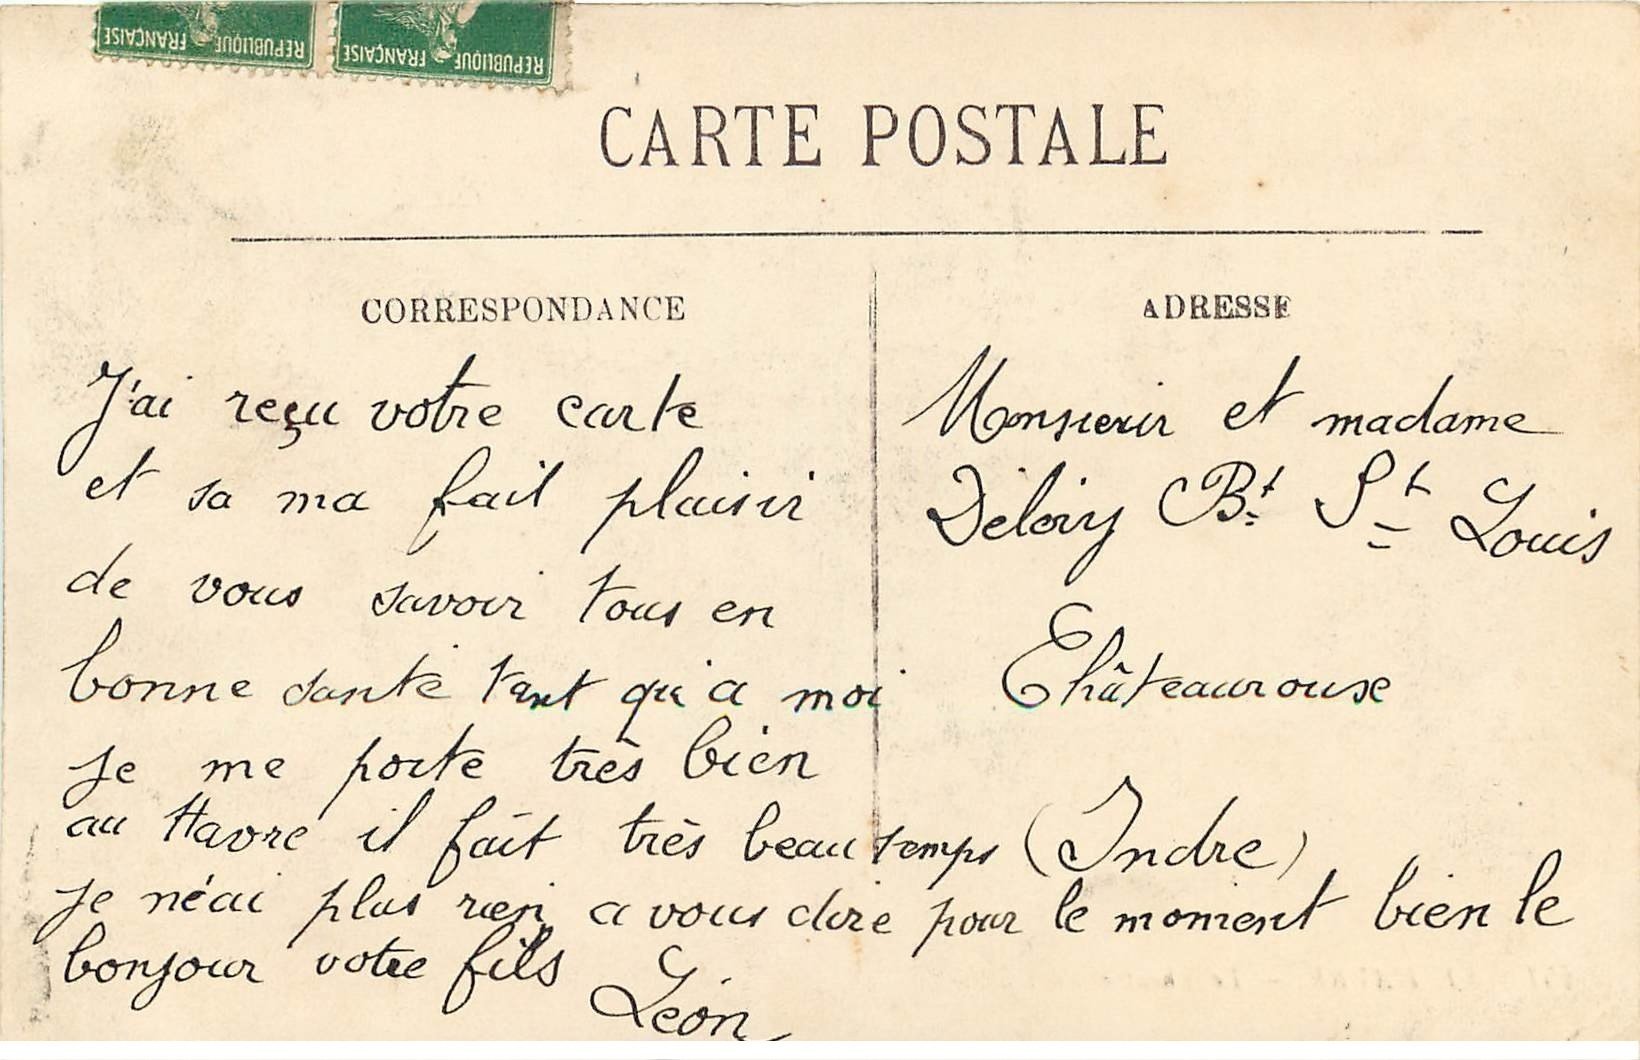 REPUBLIQUE FRANÇAISE
REPUBLIQUE FRANÇAISE
CARTE POSTALE
CORRESPONDANCE
J'ai reçu votre carte
et sa ma fait plaisir
de vous savoir tous en
bonne santé tant qu'a moi
je me porte très bien
au Havre il fait très beau temps
je n'éai plus rien a vous dire pour le moment bien le
bonjour votre fils
Léon
ADRESSE
Monsieur et madame
Déloiry Bt St Louis
Châteaurouse
(Indre)